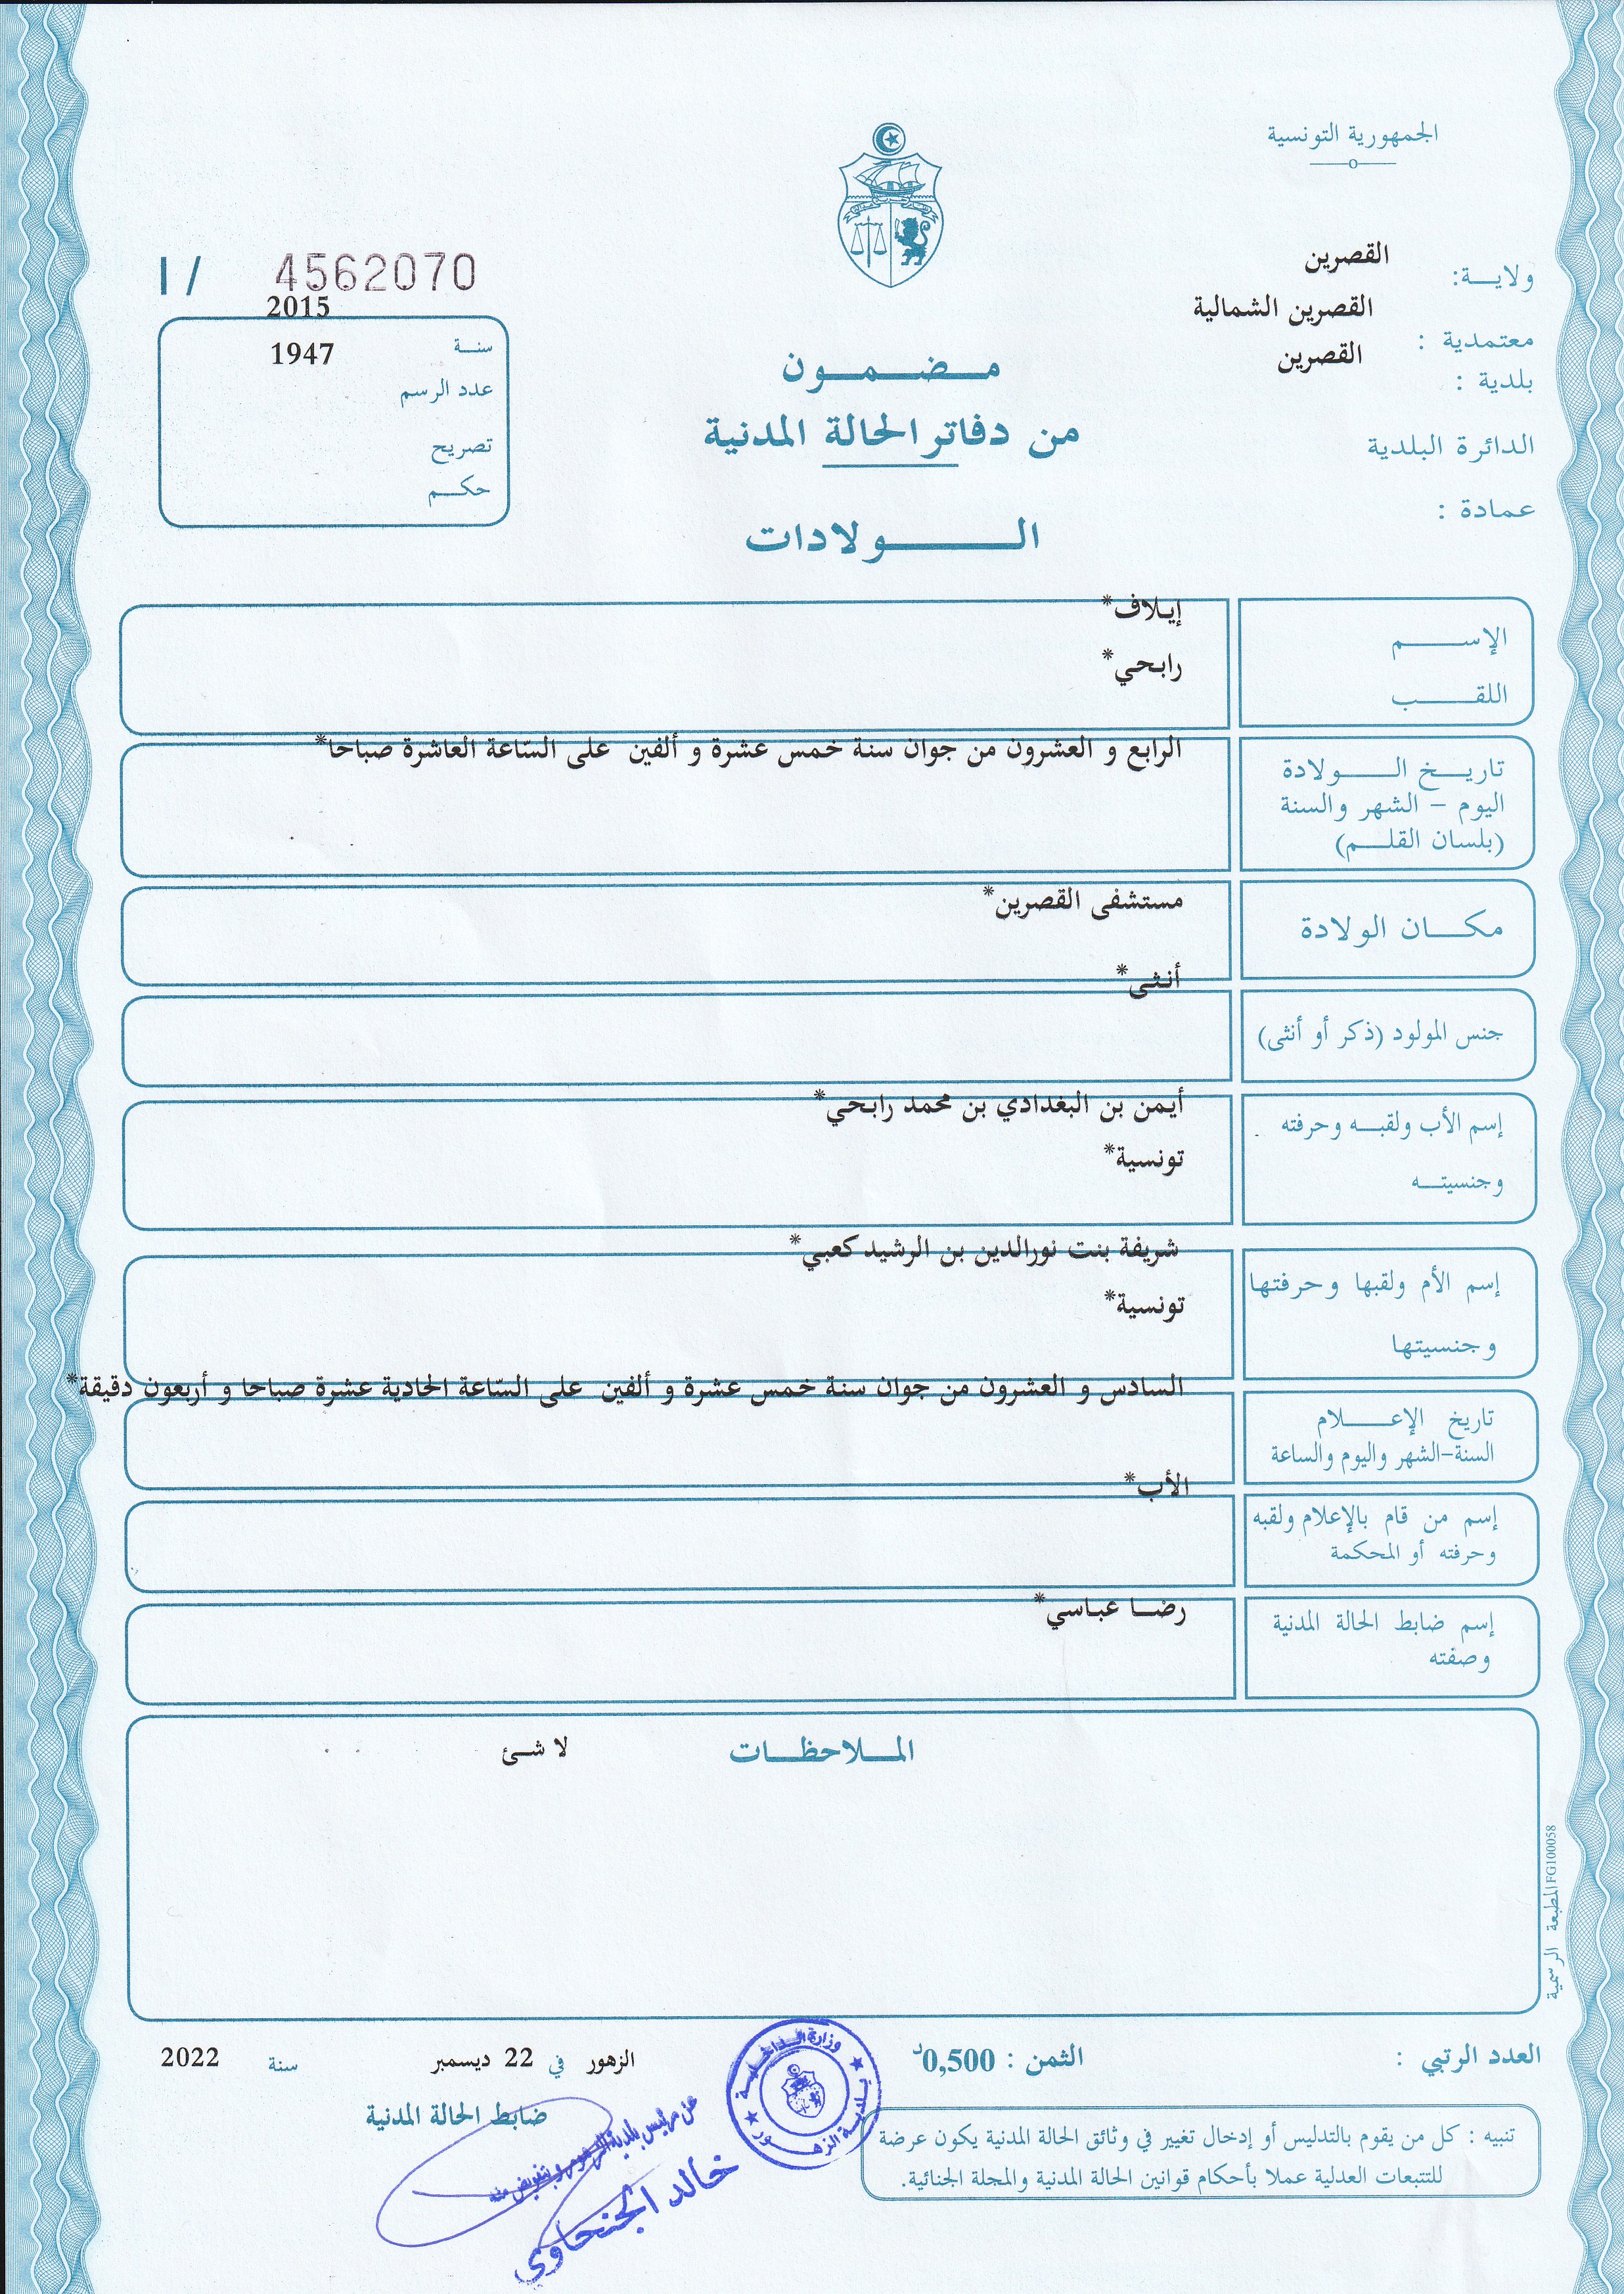 الجمهورية التونسية
ولايـــة: القصرين
معتمدية : القصرين الشمالية
بلدية : القصرين
الدائرة البلدية
عمادة :
مـــضـــمـــون
من دفاتر الحالة المدنية
الـــــــولادات
I / 4562070
2015
سنـــة 1947
عدد الرسم
تصريح
حكــــم
الإســــــم إيلاف*
اللقــــــب رابحي*
تاريـــخ الـــــولادة الرابع و العشرون من جوان سنة خمس عشرة و ألفين على السّاعة العاشرة صباحا*
اليوم – الشهر والسنة
(بلسان القلـــم)
مكــــان الولادة مستشفى القصرين*
أنثى*
جنس المولود (ذكر أو أنثى)
إسم الأب ولقبــه وحرفته أيمن بن البغدادي بن محمد رابحي*
وجنسيتـــه تونسية*
شريفة بنت نورالدين بن الرشيد كعبي*
إسم الأم ولقبها وحرفتها تونسية*
وجنسيتها
السادس و العشرون من جوان سنة خمس عشرة و ألفين على السّاعة الحادية عشرة صباحا و أربعون دقيقة*
تاريخ الإعــــــلام
السنة-الشهر واليوم والساعة
الأب*
إسم من قام بالإعلام ولقبه
وحرفته أو المحكمة
إسم ضابط الحالة المدنية رضـا عباسي*
وصفته
المـــلاحظـــات لا شئ
المطبعة الرسمية FG100058
العدد الرتبي : الثمن : 0,500د
الزهور في 22 ديسمبر سنة 2022
ضابط الحالة المدنية
وزارة الداخلية
بلدية الزهور
عن رئيس بلدية الزهور وبتفويض منه
خالد الجنحاوي
تنبيه : كل من يقوم بالتدليس أو إدخال تغيير في وثائق الحالة المدنية يكون عرضة
للتتبعات العدلية عملا بأحكام قوانين الحالة المدنية والمجلة الجنائية.